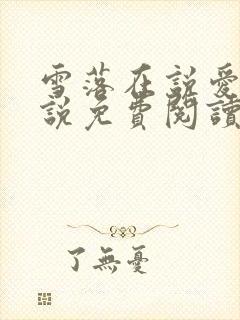 雪落在說愛
說免費閱讀
了無憂